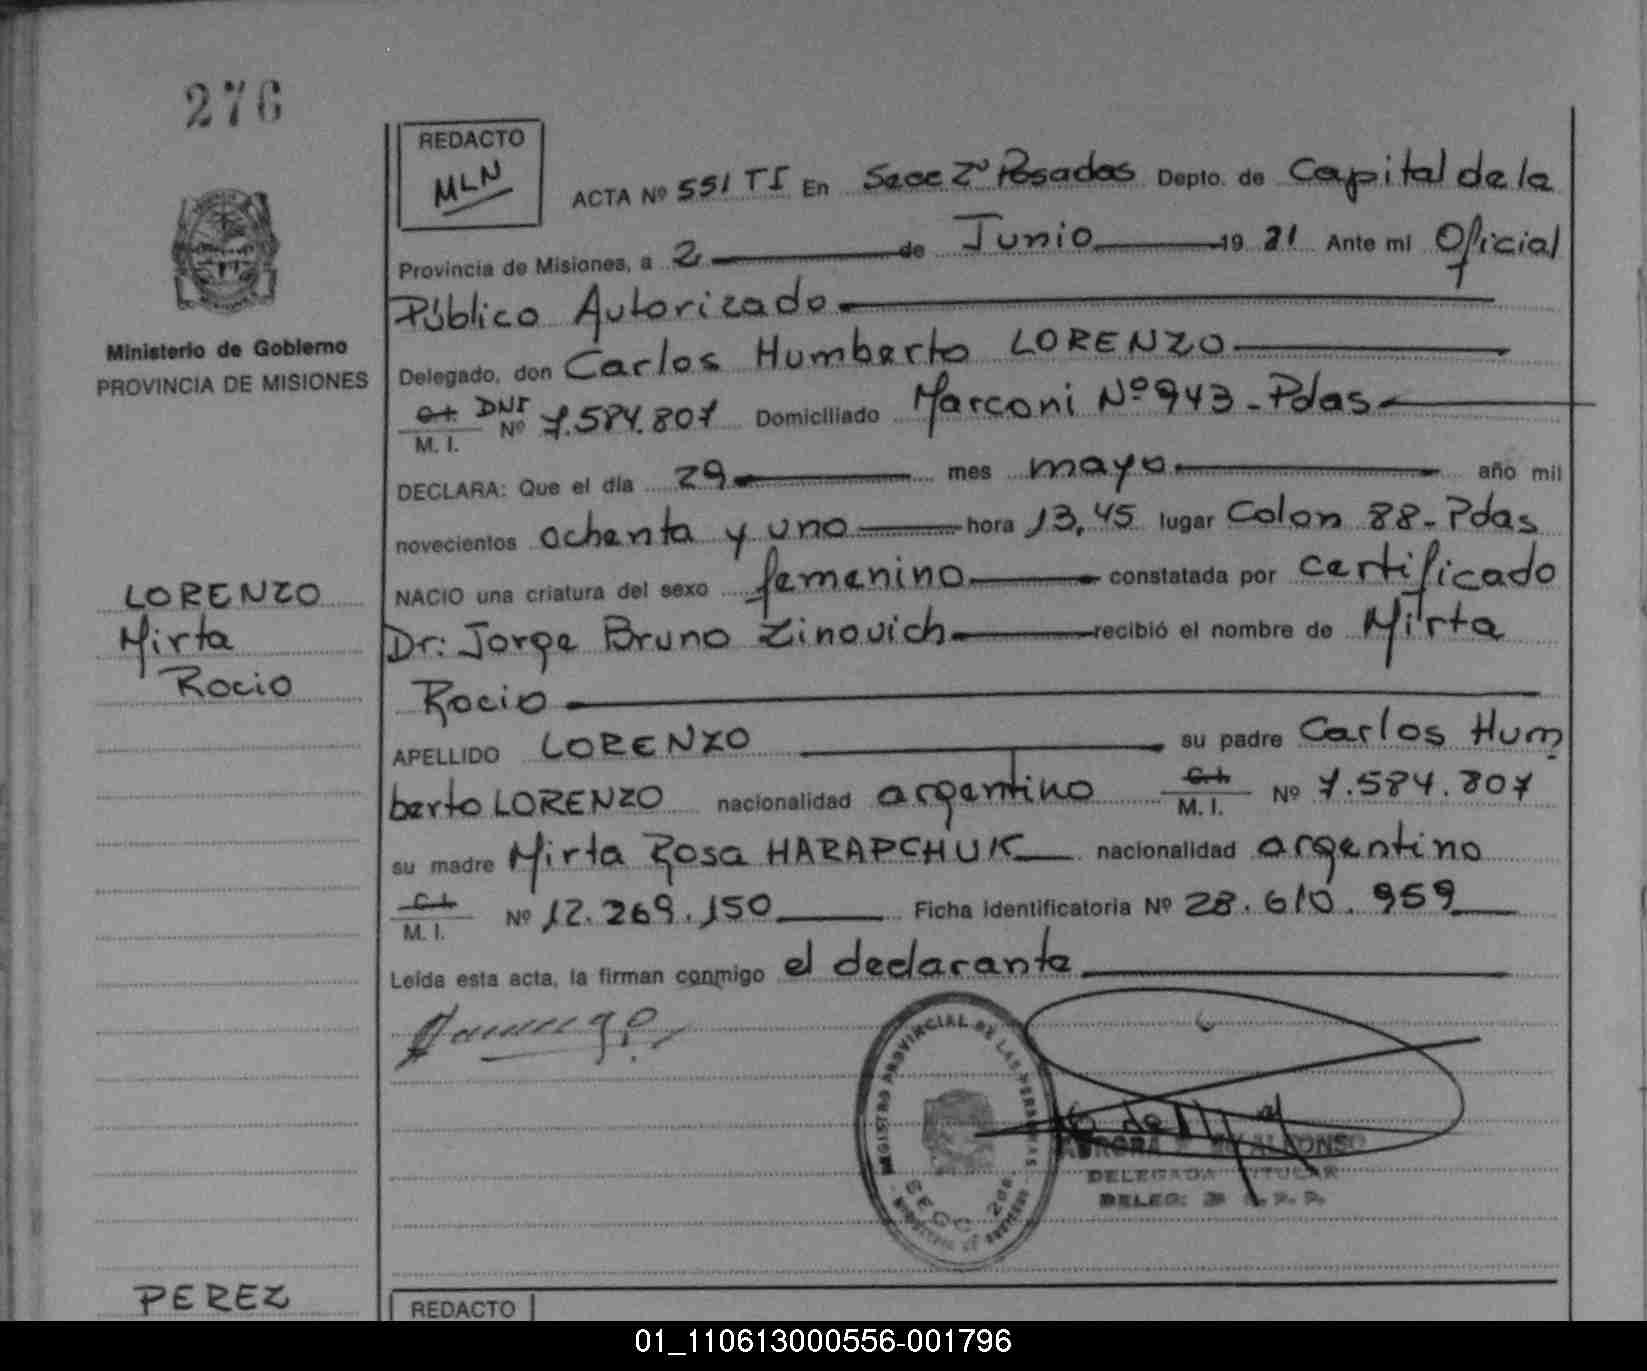 276
REDACTO
MLN
ACTA Nº 551 TI En Secc 2º Posadas Depto. de Capital de la
Provincia de Misiones, a 2 de Junio 19 81 Ante mi Oficial
Público Autorizado
Ministerio de Gobierno
PROVINCIA DE MISIONES
Delegado, don Carlos Humberto LORENZO
C.I. DNI
M. I. Nº 7.584.807 Domiciliado Marconi Nº 943 - Pdas
DECLARA: Que el día 29 mes mayo año mil
novecientos ochenta y uno hora 13,45 lugar Colon 88 - Pdas
NACIO una criatura del sexo femenino constatada por certificado
LORENZO
Mirta
Rocio
Dr: Jorge Bruno Zinovich recibió el nombre de Mirta
Rocio
APELLIDO LORENZO su padre Carlos Hum
berto LORENZO nacionalidad argentino C.I. M. I. Nº 7.584.807
su madre Mirta Rosa HARAPCHUK nacionalidad argentino
C.I. M. I. Nº 12.269.150 Ficha identificatoria Nº 28.610.959
Leída esta acta, la firman conmigo el declarante
REGISTRO PROVINCIAL DE LAS PERSONAS
SECC. 2da.
AURORA ALFONSO
DELEGADA TITULAR
DELEG: 2ª R. P. P.
PEREZ
REDACTO
01_110613000556-001796